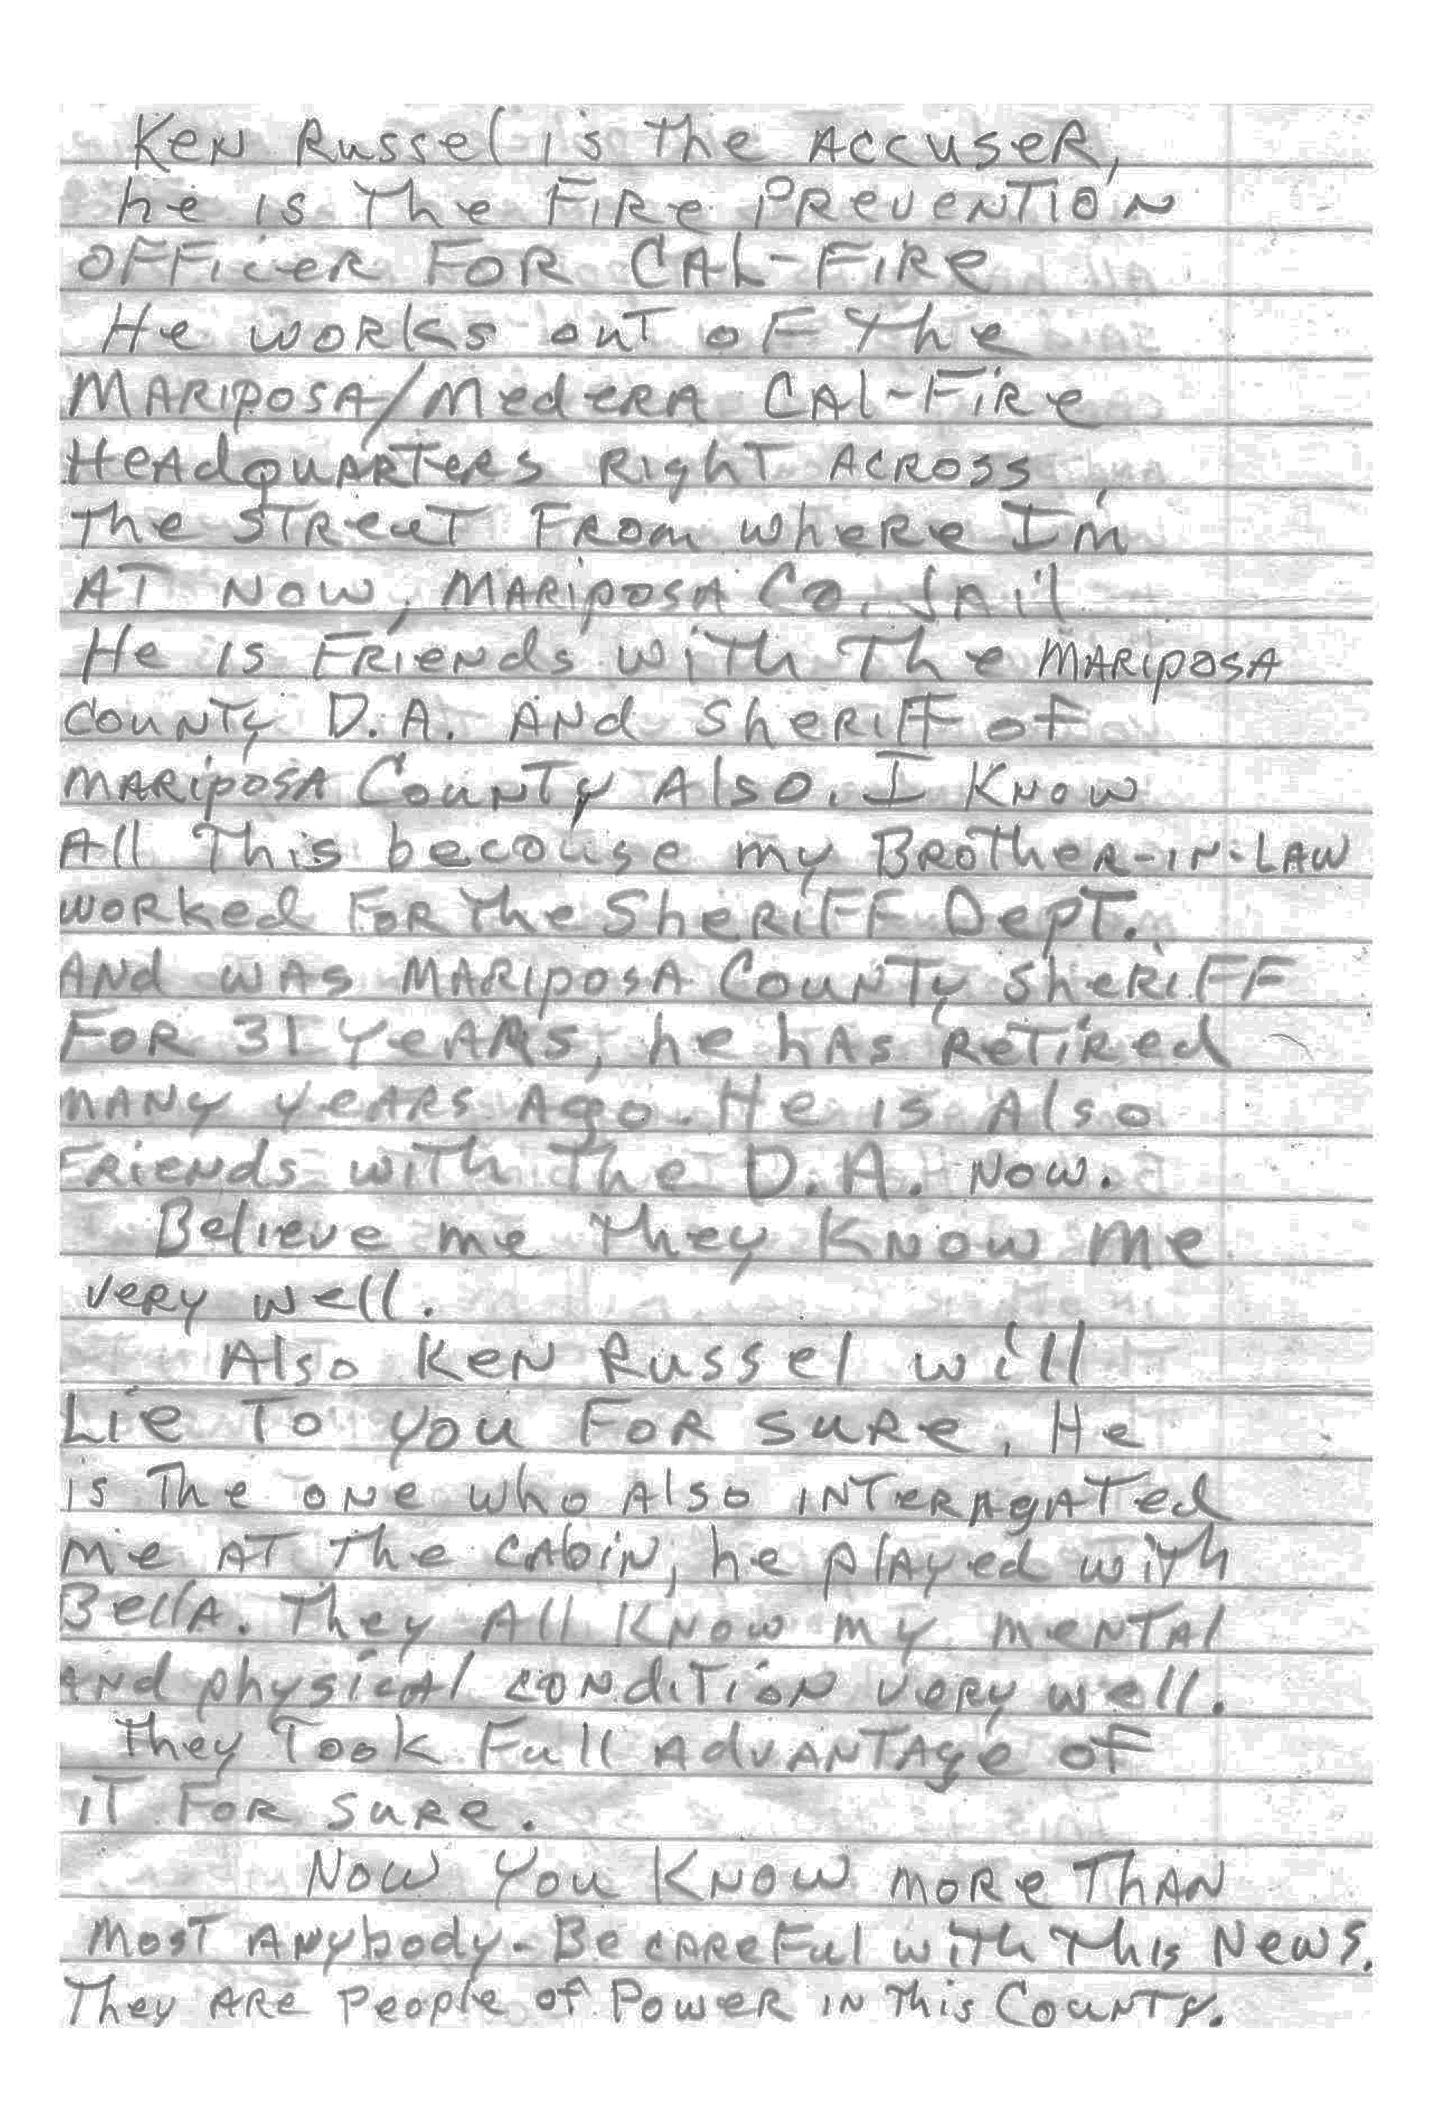 Ken Russel is the Accuser,
he is the Fire Prevention
Officer for Cal-Fire
He works out of the
Mariposa/Medera Cal-Fire
Headquarters Right Across
the Street From where I'm
At Now, Mariposa Co. Jail
He is Friends with The Mariposa
County D.A. And Sheriff of
Mariposa County Also. I Know
All This becouse my Brother-in-Law
worked For the Sheriff Dept.
And was Mariposa County Sheriff
For 31 years, he has Retired
many years Ago. He is Also
Friends with the D.A. Now.
Believe me they Know me
very well.
Also Ken Russel will
Lie To you For sure. He
is the one who Also interagated
me At the cabin, he played with
Bella. They All Know my mental
And physical condition very well.
They Took Full Advantage of
it For sure.
Now you Know more Than
Most Anybody. Be careful with this News.
They Are People of Power in this County.